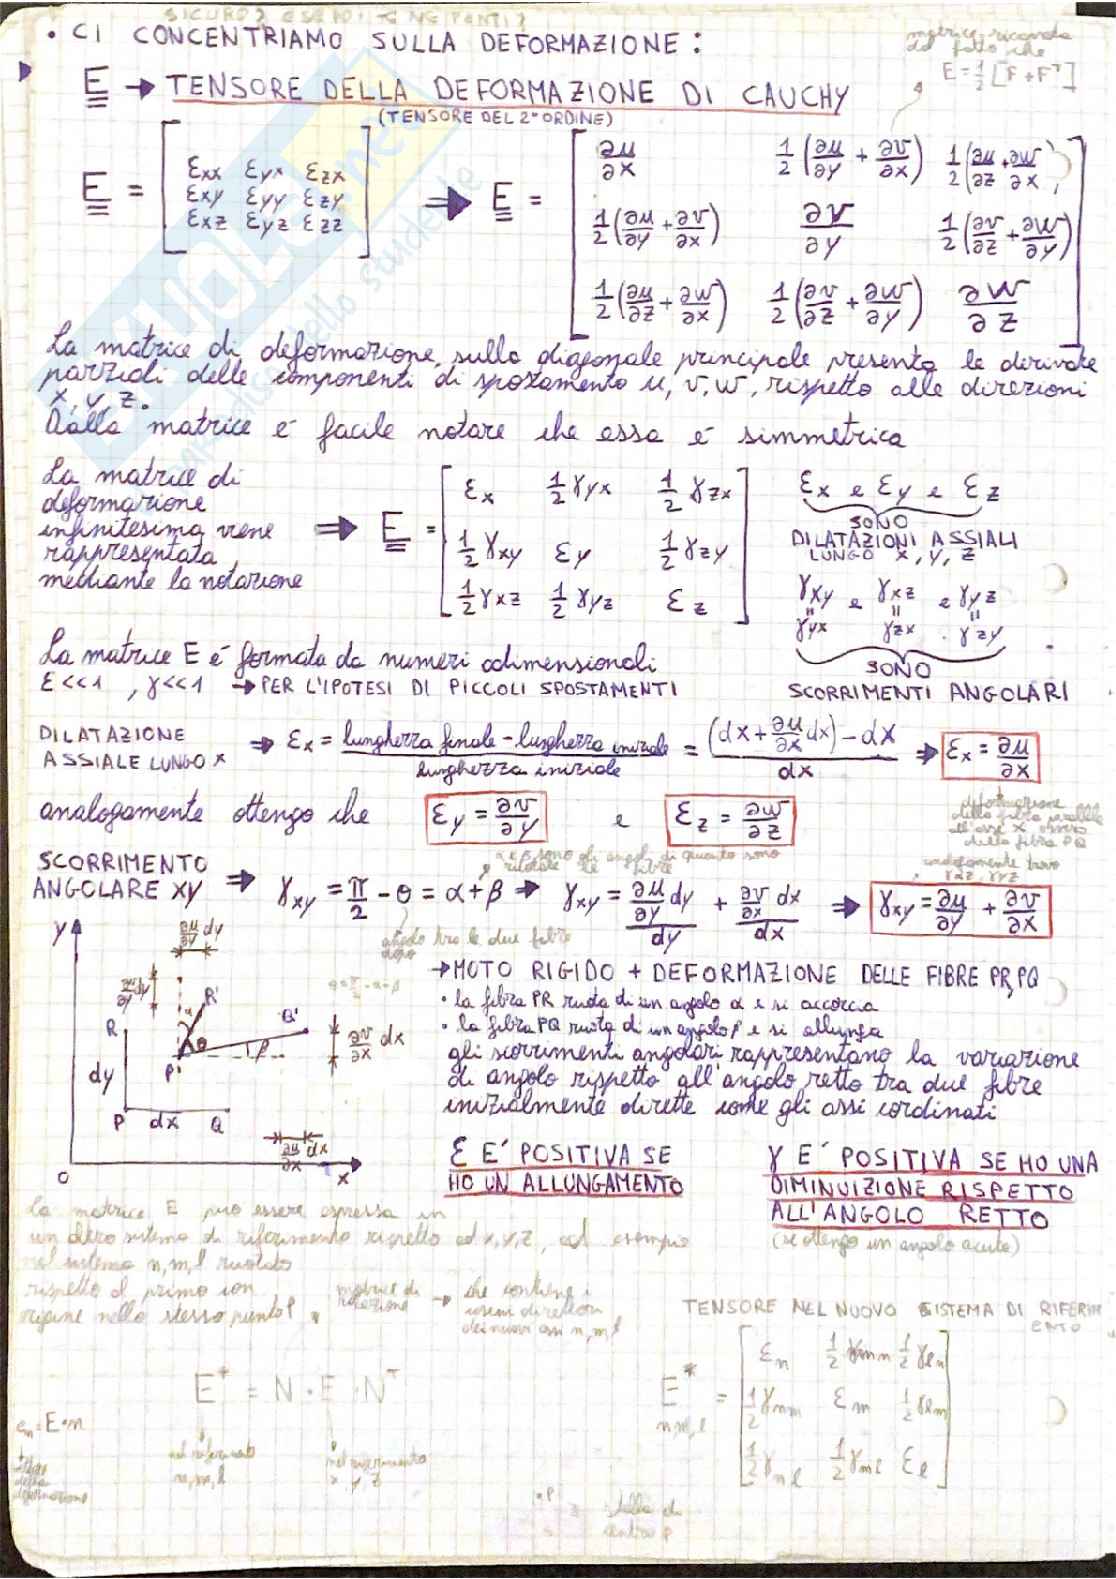 • CI CONCENTRIAMO SULLA DEFORMAZIONE:
matrice ricorda
dal fatto che
E = 1/2 [F + Fᵀ]
E → TENSORE DELLA DEFORMAZIONE DI CAUCHY
(TENSORE DEL 2° ORDINE)
E = [ εxx εyx εzx
εxy εyy εzy
εxz εyz εzz ]
⇒ E = [ ∂u/∂x 1/2(∂u/∂y + ∂v/∂x) 1/2(∂u/∂z + ∂w/∂x)
1/2(∂u/∂y + ∂v/∂x) ∂v/∂y 1/2(∂v/∂z + ∂w/∂y)
1/2(∂u/∂z + ∂w/∂x) 1/2(∂v/∂z + ∂w/∂y) ∂w/∂z ]
La matrice di deformazione, sulla diagonale principale presenta le derivate
parziali delle componenti di spostamento u, v, w, rispetto alle direzioni
x, y, z.
Dalla matrice è facile notare che essa è simmetrica
La matrice di
deformazione
infinitesima viene
rappresentata
mediante la notazione
⇒ E = [ εx 1/2 γyx 1/2 γzx
1/2 γxy εy 1/2 γzy
1/2 γxz 1/2 γyz εz ]
εx e εy e εz
SONO
DILATAZIONI ASSIALI
LUNGO x, y, z
γxy e γxz e γyz
= = =
γyx γzx γzy
SONO
SCORRIMENTI ANGOLARI
La matrice E è formata da numeri adimensionali
ε<<1 , γ<<1 → PER L'IPOTESI DI PICCOLI SPOSTAMENTI
DILATAZIONE
ASSIALE LUNGO x
⇒ εx = lunghezza finale - lunghezza iniziale / lunghezza iniziale = (dx + ∂u/∂x dx) - dx / dx ⇒ εx = ∂u/∂x
analogamente ottengo che εy = ∂v/∂y e εz = ∂w/∂z
deformazione
della fibra parallela
all'asse x ovvero
della fibra PQ
α e β sono gli angoli di quanto sono
ruotate le fibre
analogamente trovo
γxz, γyz
SCORRIMENTO
ANGOLARE XY
⇒ γxy = π/2 - θ = α + β ⇒ γxy = ∂u/∂y dy / dy + ∂v/∂x dx / dx ⇒ γxy = ∂u/∂y + ∂v/∂x
angolo tra le due fibre
dopo
θ = π/2 - α - β
y
∂u/∂y dy
∂v/∂y dy
R'
α
Q'
R
θ
β
∂v/∂x dx
P'
dy
P dx Q
∂u/∂x dx
O x
→ MOTO RIGIDO + DEFORMAZIONE DELLE FIBRE PR, PQ
• la fibra PR ruota di un angolo α e si accorcia
• la fibra PQ ruota di un angolo β e si allunga
gli scorrimenti angolari rappresentano la variazione
di angolo rispetto all'angolo retto tra due fibre
inizialmente dirette come gli assi cordinati
ε E' POSITIVA SE
HO UN ALLUNGAMENTO
γ E' POSITIVA SE HO UNA
DIMINUIZIONE RISPETTO
ALL'ANGOLO RETTO
(se ottengo un angolo acuto)
La matrice E può essere espressa in
un altro sistema di riferimento rispetto ad x, y, z, ad esempio
nel sistema n, m, l ruotato
rispetto al primo con
origine nello stesso punto P
matrice di
rotazione
→ che contiene i
coseni direttori
dei nuovi assi n, m, l
TENSORE NEL NUOVO SISTEMA DI RIFERIM
ENTO
E* = N · E · Nᵀ
nel riferimento
n, m, l
nel riferimento
x, y, z
E* n,m,l = [ εn 1/2 γmn 1/2 γln
1/2 γnm εm 1/2 γlm
1/2 γnl 1/2 γml εl ]
en = E · n
della
deformazione
• P
stella di
centro P